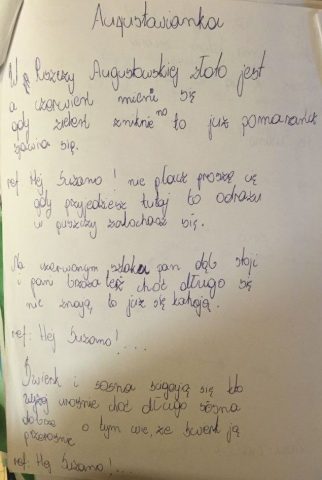 Augustowianka
W Puszczy Augustowskiej złoto jest
a czerwień mieni się
gdy zieleń zniknie no to już pomarańcz
zjawia się.
ref. Hej Zuzanno! nie płacz proszę cię
gdy przyjedziesz tutaj to odrazu
w puszczy zakochasz się.
Na czerwonym szlaku pan dąb stoi
i pani brzoza też choć długo się
nie znają, to już się kochają.
ref: Hej Zuzanno! ...
Świerk i sosna sięgają się kto
wyżej urośnie choć długo sosna
dobrze o tym wie, że świerk ją
przerośnie
ref: Hej Zuzanno! ...